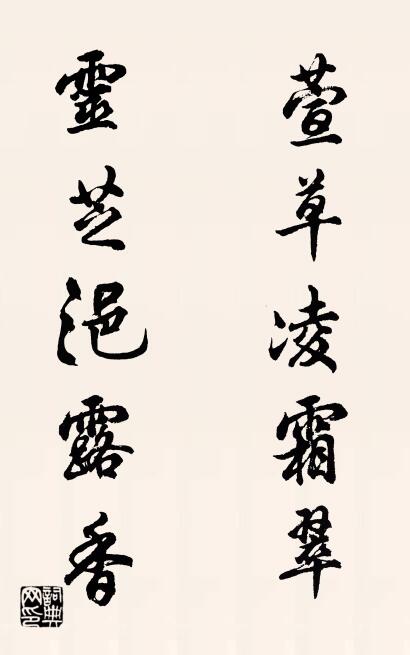 萱草凌霜翠
靈芝浥露香
詞典網印